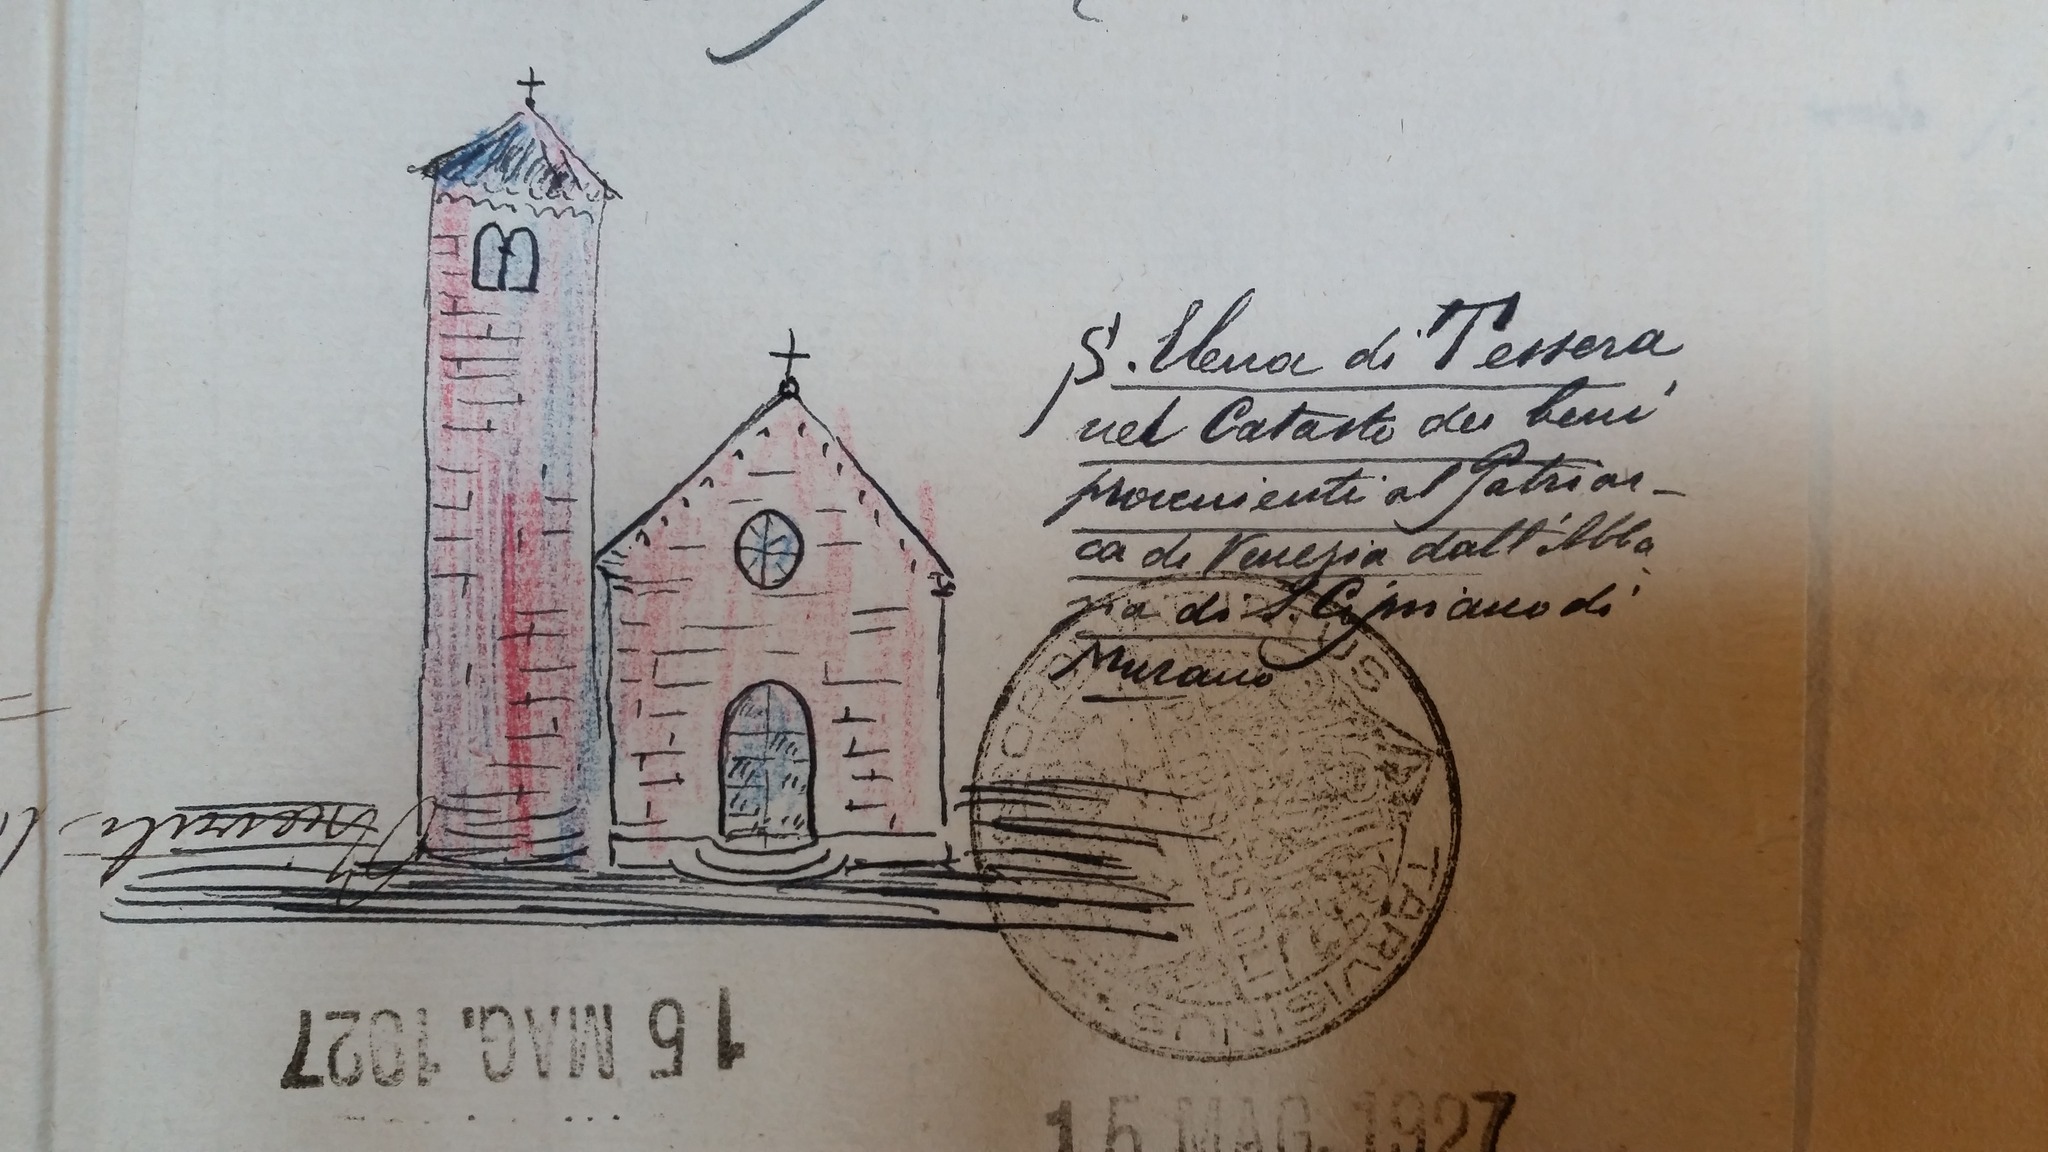 S. Elena di Tessera
nel Catasto dei beni
provenienti al Patriar-
ca di Venezia dall'Abba
zia di S. Cipriano di
Murano
TARVISINUS
15 MAG. 1927
15 MAG. 1927